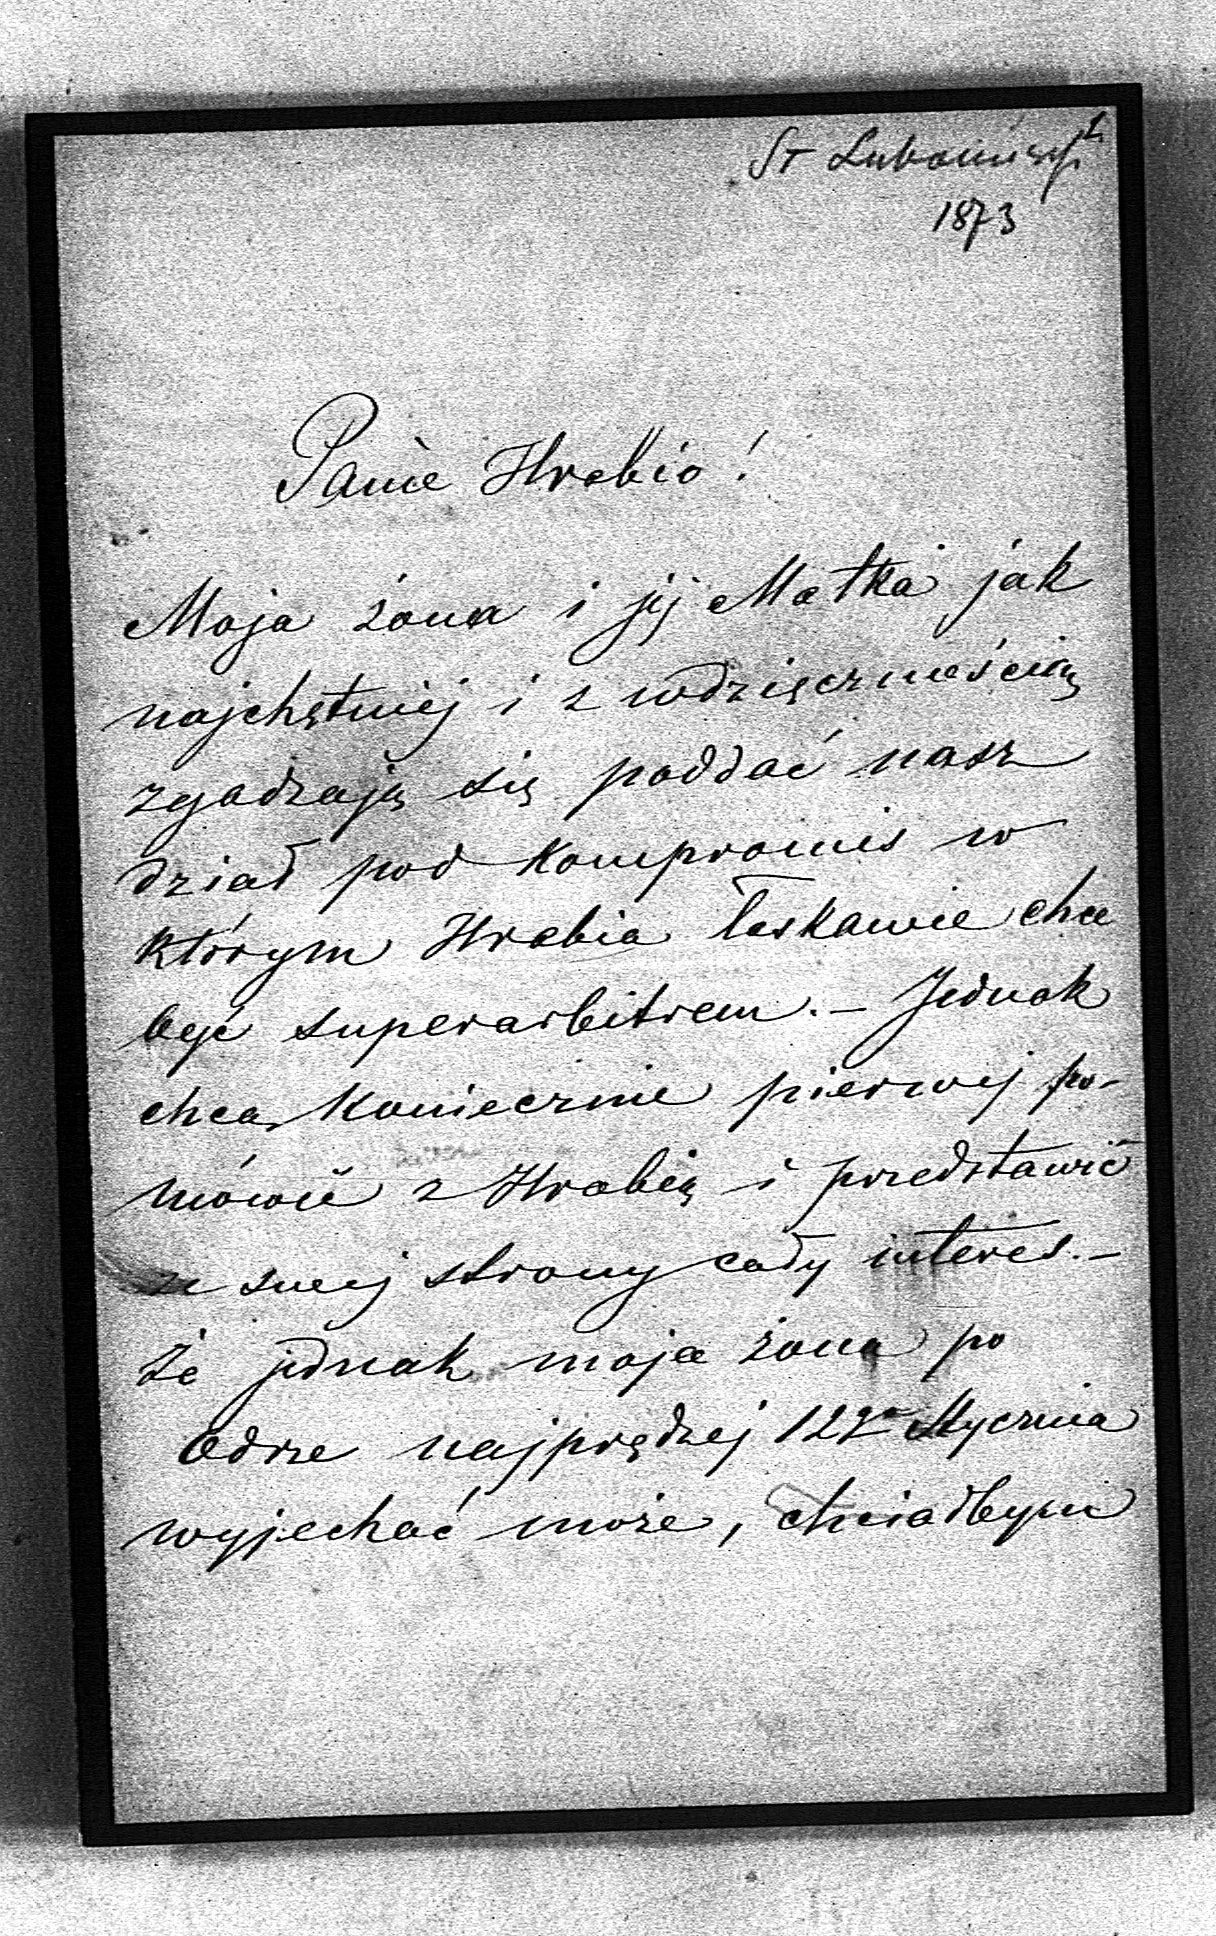 St Lubomirski
1873
Panie Hrabio!
Moja żona i jéj Matka jak
najchętniéj i z wdzięcznością
zgadzają się poddać nasz
dział pod kompromis w
którym Hrabia łaskawie chce
być superarbitrem. – Jednak
chcą koniecznie pierwéj po-
mówić z Hrabią i przedstawić
ze swej strony cały interes. –
Że jednak moja żona po
odrze najprędzej 12go Stycznia
wyjechać może, chciałbym